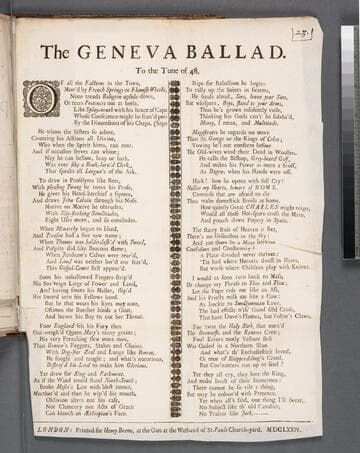 251
The GENEVA BALLAD.
To the Tune of 48.
OF all the Factions in the Town,
Mov'd by French Springs or Flemish Wheels,
None treads Religion upside down,
Or tears Pretences out at heels,
Like Splay-mouth with his brace of Caps
Whose Conscience might be scan'd perhaps
By the Dimensions of his Chaps.
He whom the Sisters so adore,
Counting his Actions all Divine,
Who when the Spirit hints, can roar,
And if occasion serves can whine;
Nay he can bellow, bray or bark.
Was ever like a
That speaks all Linguo's of the Ark.
To draw in Proselytes like Bees,
With pleasing Twang he tones his Prose,
He gives his Hand-kerchief a squeez,
And draws John Calvin through his Nose.
Motive on Motive he obtrudes,
With Slip-stocking Similitudes,
Eight Uses more, and so concludes.
When Monarchy began to bleed,
And Treason had a fine new name;
When Thames was balderdash'd with Tweed,
And Pulpits did like Beacons flame;
When Jeroboam's Calves were rear'd,
And Laud was neither lov'd nor fear'd,
This Gospel-Comet first appear'd.
Soon his unhallowed Fingers strip'd
His Sov'reign Liege of Power and Land,
And having smote his Master, slip'd
His Sword into his Fellows hand.
But he that wears his Eyes may note,
Oft-times the Butcher binds a Goat,
And leaves his Boy to cut her Throat.
Poor England felt his Fury then
Out-weigh'd Queen Mary's many grains;
His very Preaching slew more men,
Than Bonner's Faggots, Stakes and Chains.
With Dog-star Zeal and Lungs like Boreas,
He fought and taught; and what's notorious,
Destroy'd his Lord to make him Glorious.
Yet drew for King and Parliament,
As if the Wind could stand North-South;
Broke Moses's Law with blest intent,
Murther'd and then he wip'd his mouth.
Oblivion alters not his case,
Nor Clemency nor Acts of Grace
Can blanch an Æthiopian's Face.
Ripe for Rebellion he begins
To rally up the Saints in swarms,
He bauls aloud, Sirs, leave your Sins,
But whispers, Boys, stand to your Arms,
Thus he's grown insolently rude,
Thinking his Gods can't be subdu'd,
Money, I mean, and Multitude.
Magistrates he regards no more
Than St. George or the Kings of Colen;
Vowing he'l not conform before
The Old-wives wind their Dead in Woollen.
He calls the Bishop, Grey-beard Goff,
And makes his Power as mere a Scoff,
As Dagon, when his Hands were off.
Hark! how he opens with full Cry!
Hallow my Hearts, beware of ROME.
Cowards that are afraid to die
Thus make domestick Broils at home.
How quietly Great CHARLES might reign,
Would all these Hot-spurs cross the Main,
And preach down Popery in Spain.
The starry Rule of Heaven is fixt,
There's no Dissension in the sky:
And can there be a Mean betwixt
Confusion and Conformity?
A Place divided never thrives:
'Tis bad where Hornets dwell in Hives,
But worse where Children play with Knives.
I would as soon turn back to Mass,
Or change my Phrase to Thee and Thou;
Let the Pope ride me like an Ass,
And his Priests milk me like a Cow:
As buckle to Smectymnuan Laws,
The bad effects o'th' Good Old Cause,
That have Dove's Plumes, but Vultur's Claws.
For 'twas the Holy Kirk, that nurs'd
The Brownists and the Ranters Crew;
Foul Errors motly Vesture first
Was Oaded in a Northern Blue.
And what's th' Enthusiastick breed,
Or men of Knipperdoling's Creed,
But Cov'nanters run up to seed!
Yet they all cry, they love the King,
And make boast of their Innocence:
There cannot be so vile a thing,
But may be colour'd with Pretence.
Yet when all's said, one thing I'll swear,
No Subject like th' old Cavalier,
No Traitor like Jack
LONDON: Printed for Henry Brome, at the Gun at the West-end of St. Pauls Church-yard. MDCLXXIV.